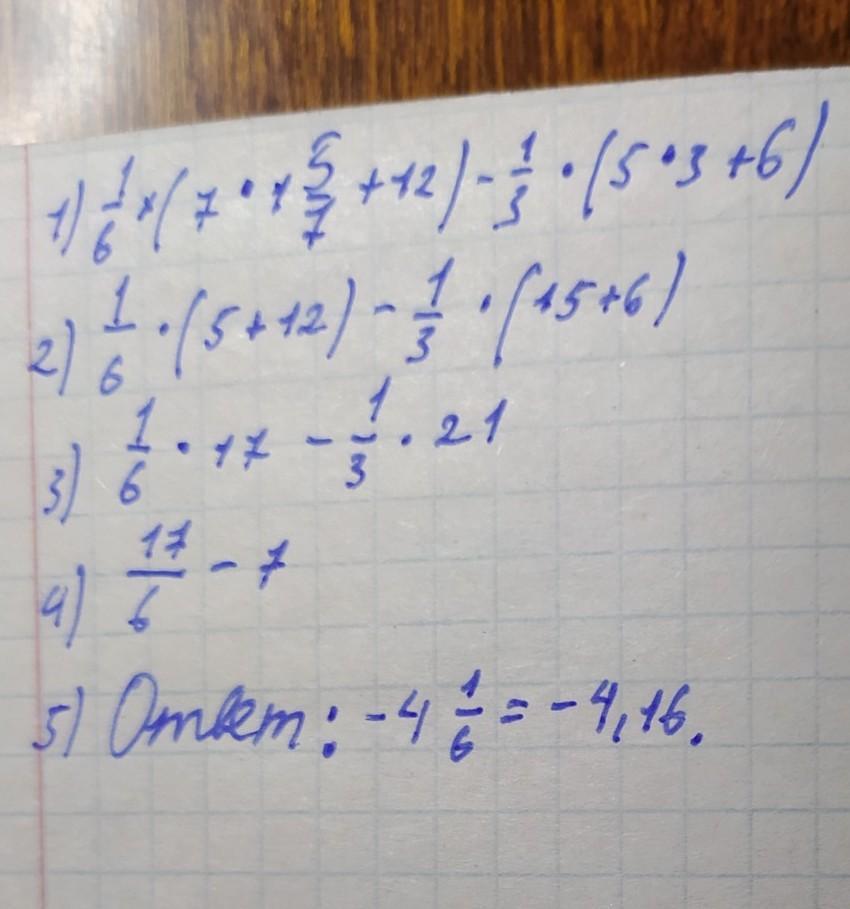 1) 1/6 × (7 · 1 5/7 + 12) - 1/3 · (5 · 3 + 6)
2) 1/6 · (5 + 12) - 1/3 · (15 + 6)
3) 1/6 · 17 - 1/3 · 21
4) 17/6 - 7
5) Ответ: -4 1/6 = -4,16.